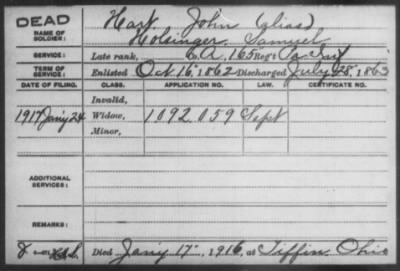 DEAD
NAME OF SOLDIER: Hart John (alias)
Holsinger, Samuel
SERVICE: Late rank, Co A, 165 Reg't Pa Inf
TERM OF SERVICE: Enlisted Oct 16, 1862 Discharged July 28, 1863
DATE OF FILING. CLASS. APPLICATION NO. LAW. CERTIFICATE NO.
Invalid,
1917 Jan'y 24 Widow, 1092059 Sept
Minor,
ADDITIONAL SERVICES:
REMARKS:
Died Jan'y 17, 1916, at Tiffin Ohio